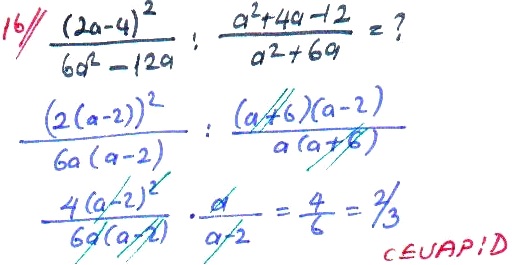 16// (2a-4)²/(6a²-12a) : (a²+4a-12)/(a²+6a) = ?
(2(a-2))²/(6a(a-2)) : ((a+6)(a-2))/(a(a+6))
4(a-2)²/(6a(a-2)) · a/(a-2) = 4/6 = 2/3
CEVAP D